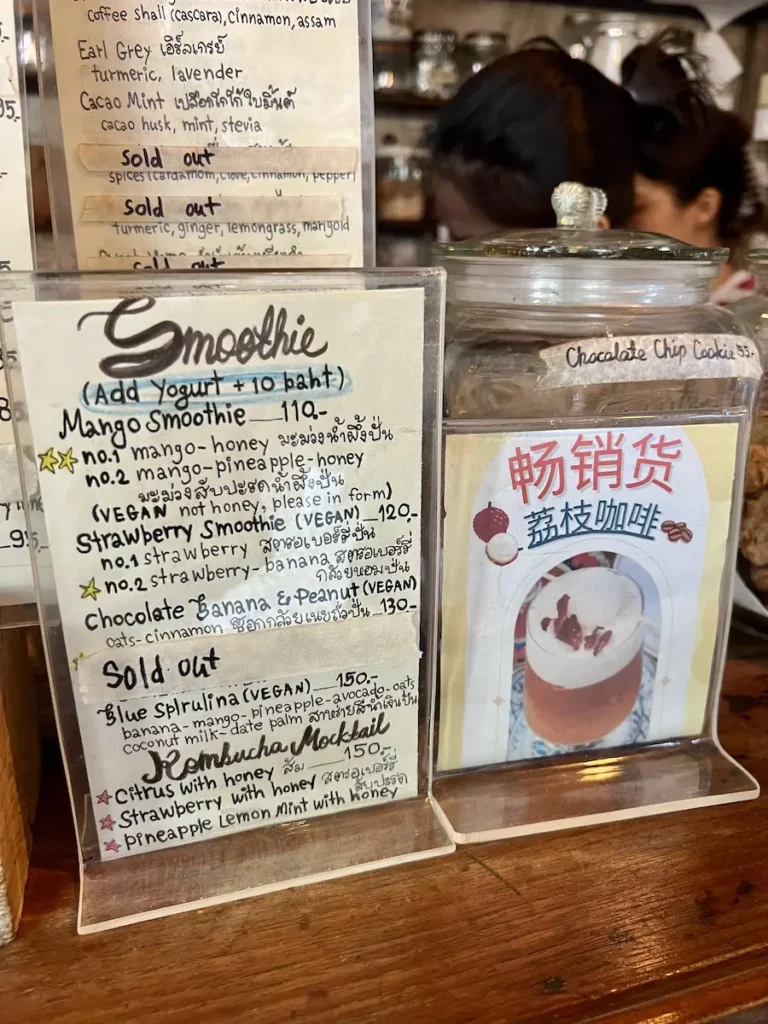 coffee shall (cascara), cinnamon, assam
Earl Grey เอิร์ลเกรย์
turmeric, lavender
Cacao Mint เปลือกโกโก้ใบมิ้นต์
cacao husk, mint, stevia
Sold out
spices (cardamom, clove, cinnamon, pepper)
Sold out
turmeric, ginger, lemongrass, marigold
Sold out
95.
95.-
Smoothie
(Add Yogurt + 10 baht)
Mango Smoothie 110.-
no.1 mango-honey มะม่วงน้ำผึ้งปั่น
no.2 mango-pineapple-honey
มะม่วงสับปะรดน้ำผึ้งปั่น
(VEGAN not honey, please in form)
Strawberry Smoothie (VEGAN) 120.-
no.1 strawberry สตรอเบอร์รี่ปั่น
no.2 strawberry-banana สตรอเบอร์รี่
กล้วยหอมปั่น
Chocolate Banana & Peanut (VEGAN)
oats-cinnamon ช็อกกล้วยเนยถั่วปั่น 130.-
Sold out
Blue Spirulina (VEGAN) 150.-
banana-mango-pineapple-avocado-oats
coconut milk-date palm สาหร่ายสีน้ำเงินปั่น
Kombucha Mocktail
150.-
Citrus with honey ส้ม
Strawberry with honey สตรอเบอร์รี่
สับปะรด
pineapple Lemon Mint with honey
Chocolate Chip Cookie 55.-
畅销货
荔枝咖啡